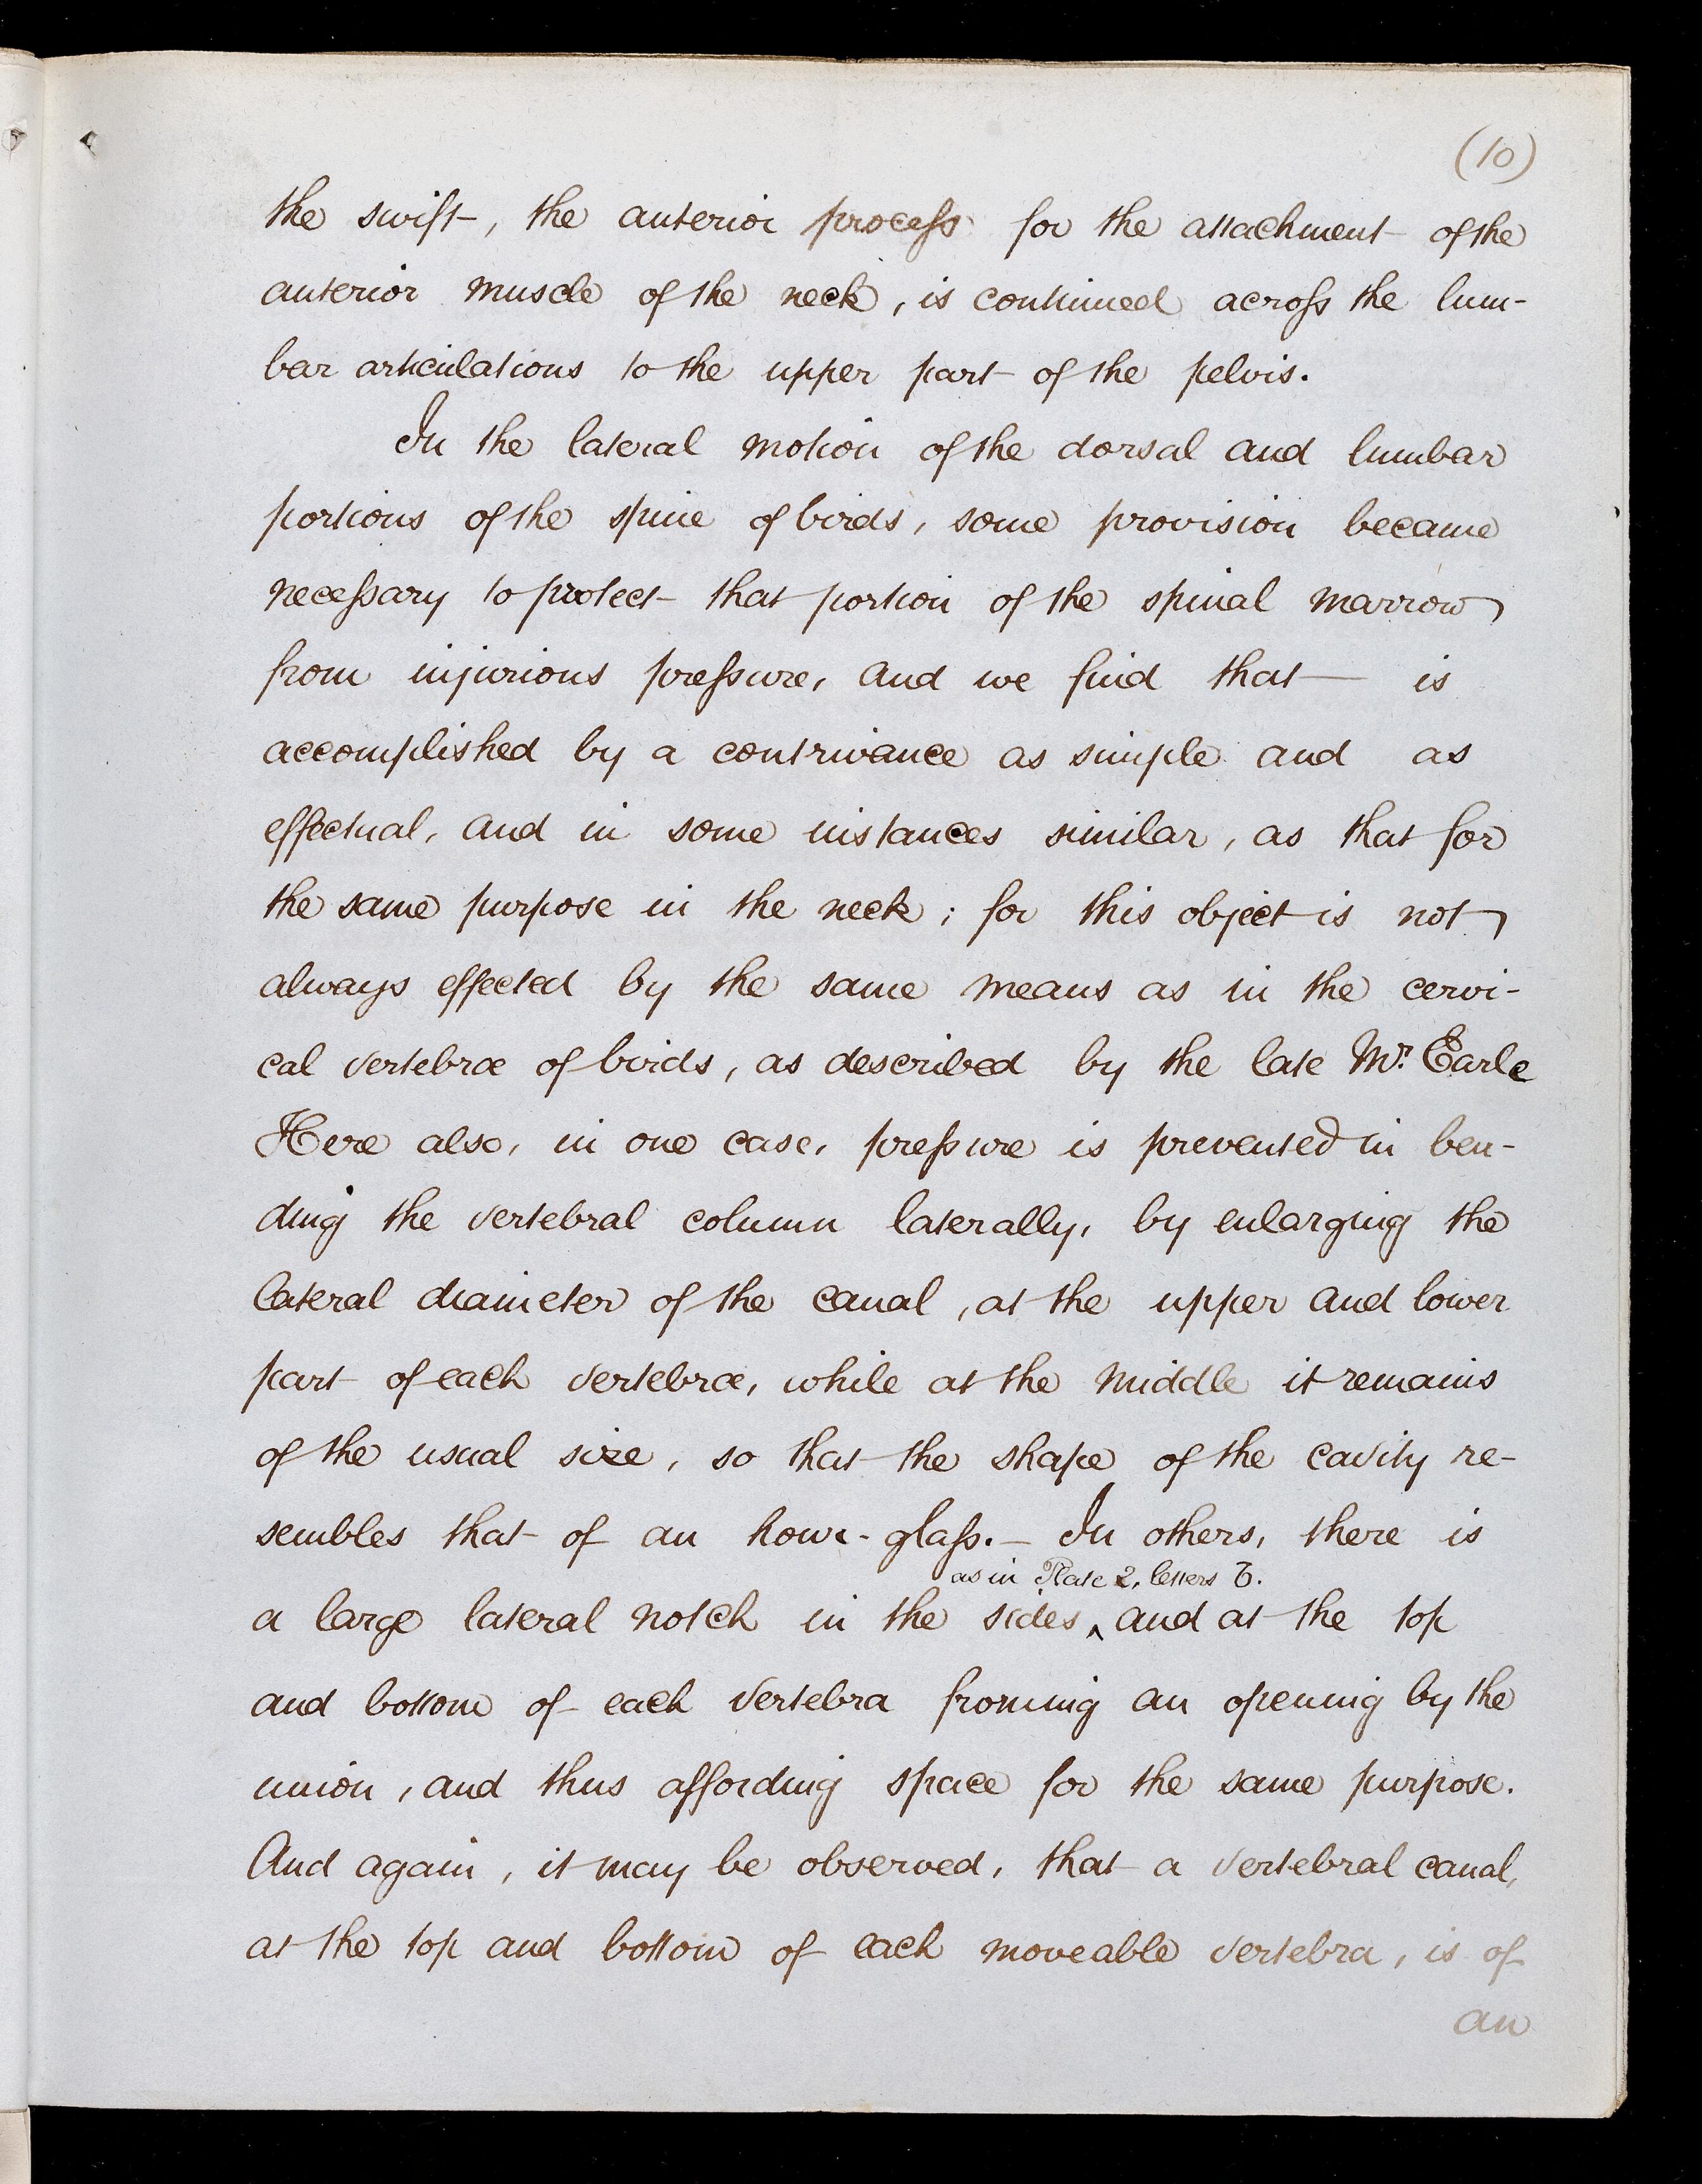 (10)
the swift, the anterior process for the attachment of the
anterior muscle of the neck, is continued across the lum-
bar articulations to the upper part of the pelvis.
In the lateral motion of the dorsal and lumbar
portions of the spine of birds, some provision became
necessary to protect that portion of the spinal marrow
from injurious pressure, and we find that is
accomplished by a contrivance as simple and as
effectual, and in some instances similar, as that for
the same purpose in the neck; for this object is not
always effected by the same means as in the cervi-
cal vertebræ of birds, as described by the late Mr. Earle
Here also, in one case, pressure is prevented in ben-
ding the vertebral column laterally, by enlarging the
lateral diameter of the canal, at the upper and lower
part of each vertebræ, while at the middle it remains
of the usual size, so that the shape of the cavity re-
sembles that of an hour-glass.— In others, there is
as in Plate 2, letters
a large lateral notch in the sides ‸ and at the top
and bottom of each vertebra froming an opening by the
union, and thus affording space for the same purpose.
And again, it may be observed, that a vertebral canal,
at the top and bottom of each moveable vertebra, is of
an